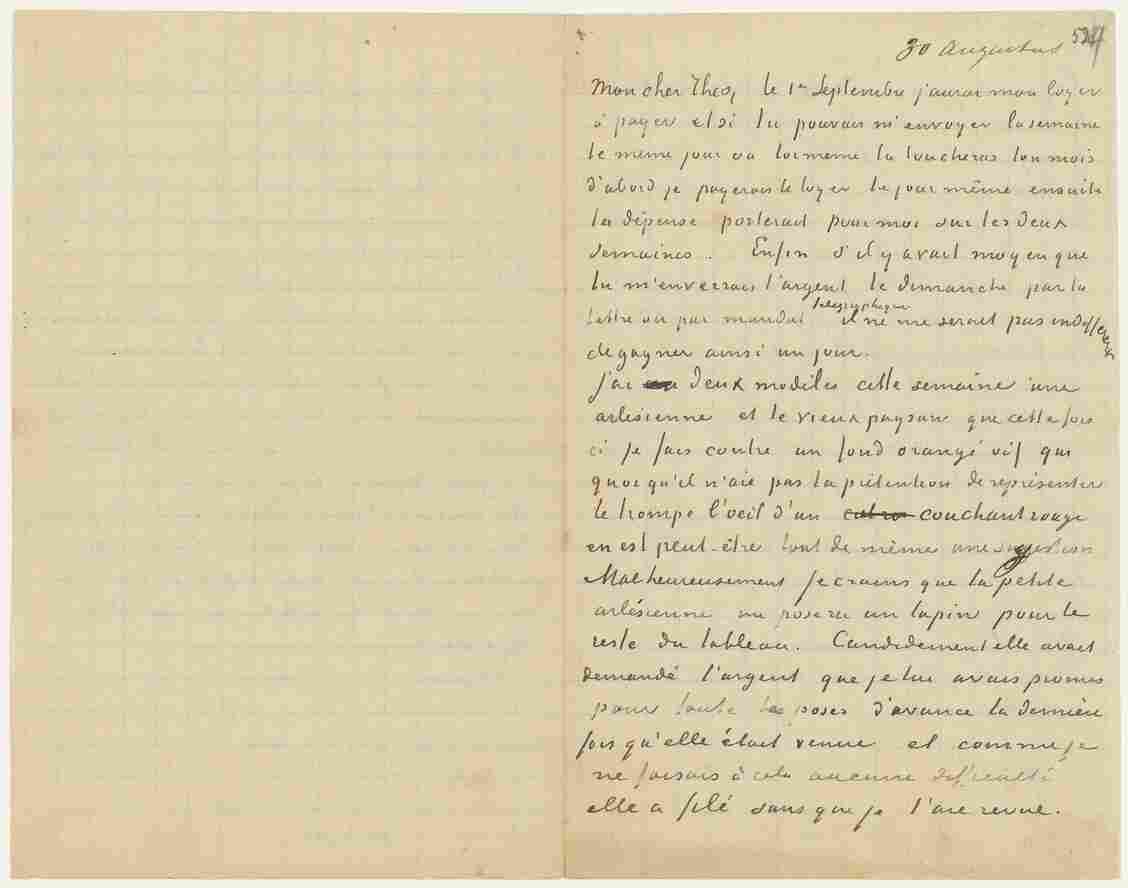 30 Augustus 524
Mon cher Theo, le 1er Septembre j'aurai mon loyer
à payer et si tu pouvais m'envoyer la semaine
le meme jour où toi meme tu toucheras ton mois
d'abord je payerais le loyer le jour même ensuite
la dépense porterait pour moi sur les deux
semaines. Enfin s'il y avait moyen que
tu m'enverrais l'argent le dimanche par ta
lettre ou par mandat telegraphique il ne me serait pas indifferent
de gagner ainsi un jour.
J'ai deux modèles cette semaine une
arlésienne et le vieux paysan que cette fois
ci je fais contre un fond orangé vif qui
quoiqu'il n'aie pas la prétention de représenter
le trompe l'oeil d'un couchant rouge
en est peut-être tout de même une suggestion
Malheureusement je crains que la petite
arlésienne me posera un lapin pour le
reste du tableau. Candidement elle avait
demandé l'argent que je lui avais promis
pour toute les poses d'avance la dernière
fois qu'elle était venue et comme je
ne faisais à cela aucune difficulté
elle a filé sans que je l'aie revue.